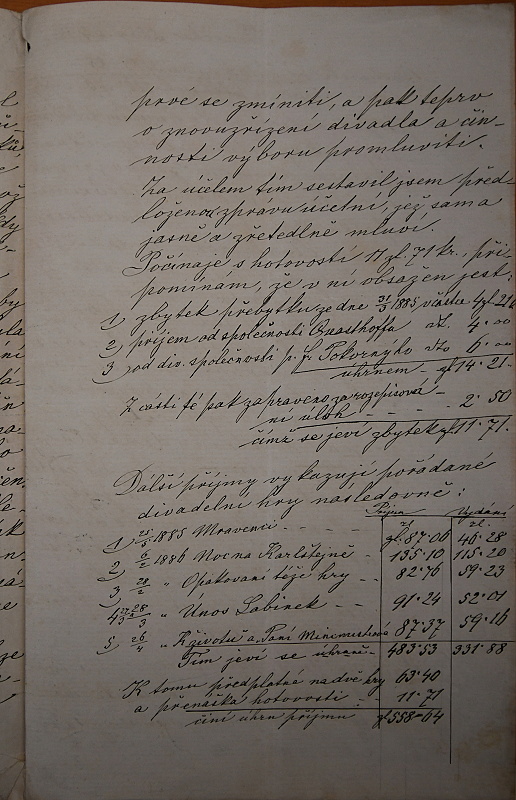 prvé se zmíniti, a pak teprv
o znovuzřízení divadla a čin-
nosti výboru promluviti.
Za účelem tím sestavil jsem před-
loženou zprávu účetní, jež sama
jasně a zřetedlně mluví.
Počínaje s hotovostí 11 zl. 71 kr., při-
pomínám, že v ní obsažen jest:
1) zbytek přebytku ze dne 31/3 1885 v částce 4 zl. 21 k
2) příjem od společnosti zl. 4·00
3) od div. společnosti p. F. Pokorného 6·00
úhrnem zl 14·21
Z části té pak zapraveno za rozepisová-
ní úloh - - - 2·50
čímž se jeví zbytek zl 11·71.
Další příjmy vykazují pořádané
divadelní hry následovně:
Příjem Vydání
zl zl.
1) 1885 Mravenci - - - - zl. 87·06 46·28
2) 1886 Noc na Karlštejně - 135·10 115·20
3) 28/2 " Opakování téže hry - - 82·76 59·23
4) " Únos Sabinek - - 91·24 52·01
5) " a Paní Mincmistrová 87·37 59·16
Tím jeví se úhrnem 483·53 331·88
K tomu předplatné na dvě hry 63·40
a přenáška hotovosti - 11·71
činí úhrn příjmu zl 558·64